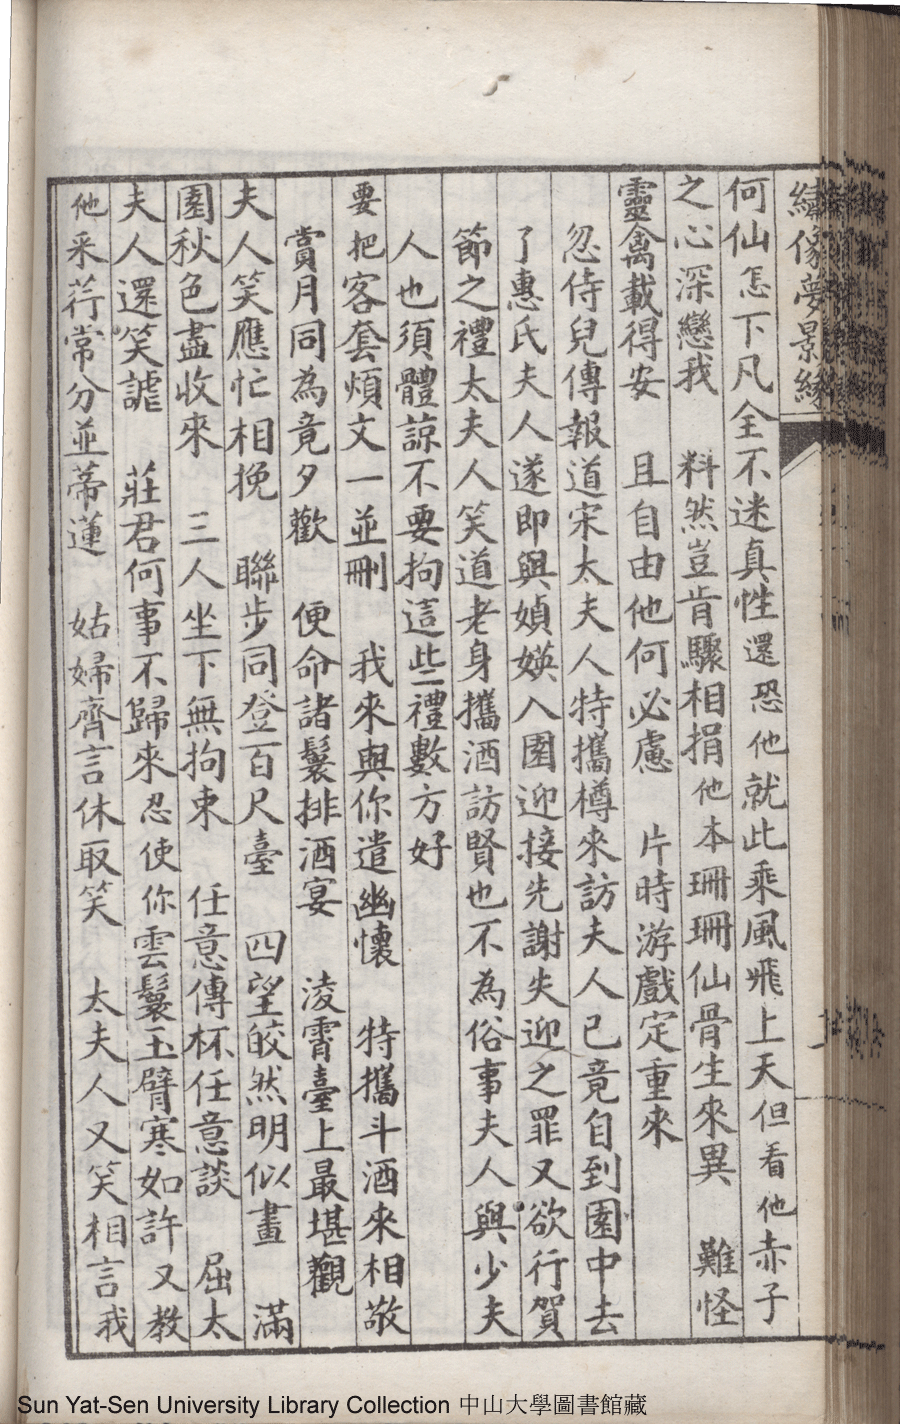 繡像夢景緣
何仙怎下凡全不迷真性還恐他就此乘風飛上天但看他赤子
之心深戀我　料然豈肯驟相捐他本珊珊仙骨生來異　難怪
靈禽載得安　且自由他何必慮　片時游戲定重來
忽侍兒傳報道宋太夫人特攜樽來訪夫人已竟自到園中去
了惠氏夫人遂即與媜媖入園迎接先謝失迎之罪又欲行賀
節之禮太夫人笑道老身攜酒訪賢也不為俗事夫人與少夫
人也須體諒不要拘這些禮數方好
要把客套煩文一並刪　我來與你遣幽懷　特攜斗酒來相敬
賞月同為竟夕歡　便命諸鬟排酒宴　淩霄臺上最堪觀
夫人笑應忙相挽　聯步同登百尺臺　四望皎然明似畫　滿
園秋色盡收來　三人坐下無拘束　任意傳杯任意談　屈太
夫人還笑謔　莊君何事不歸來忍使你雲鬟玉臂寒如許又教
他采荇常分並蒂蓮　姑婦齊言休取笑　太夫人又笑相言我
Sun Yat-Sen University Library Collection 中山大學圖書館藏